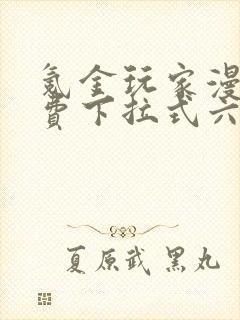 氪金玩家漫
费下拉式六
夏原武 黑丸